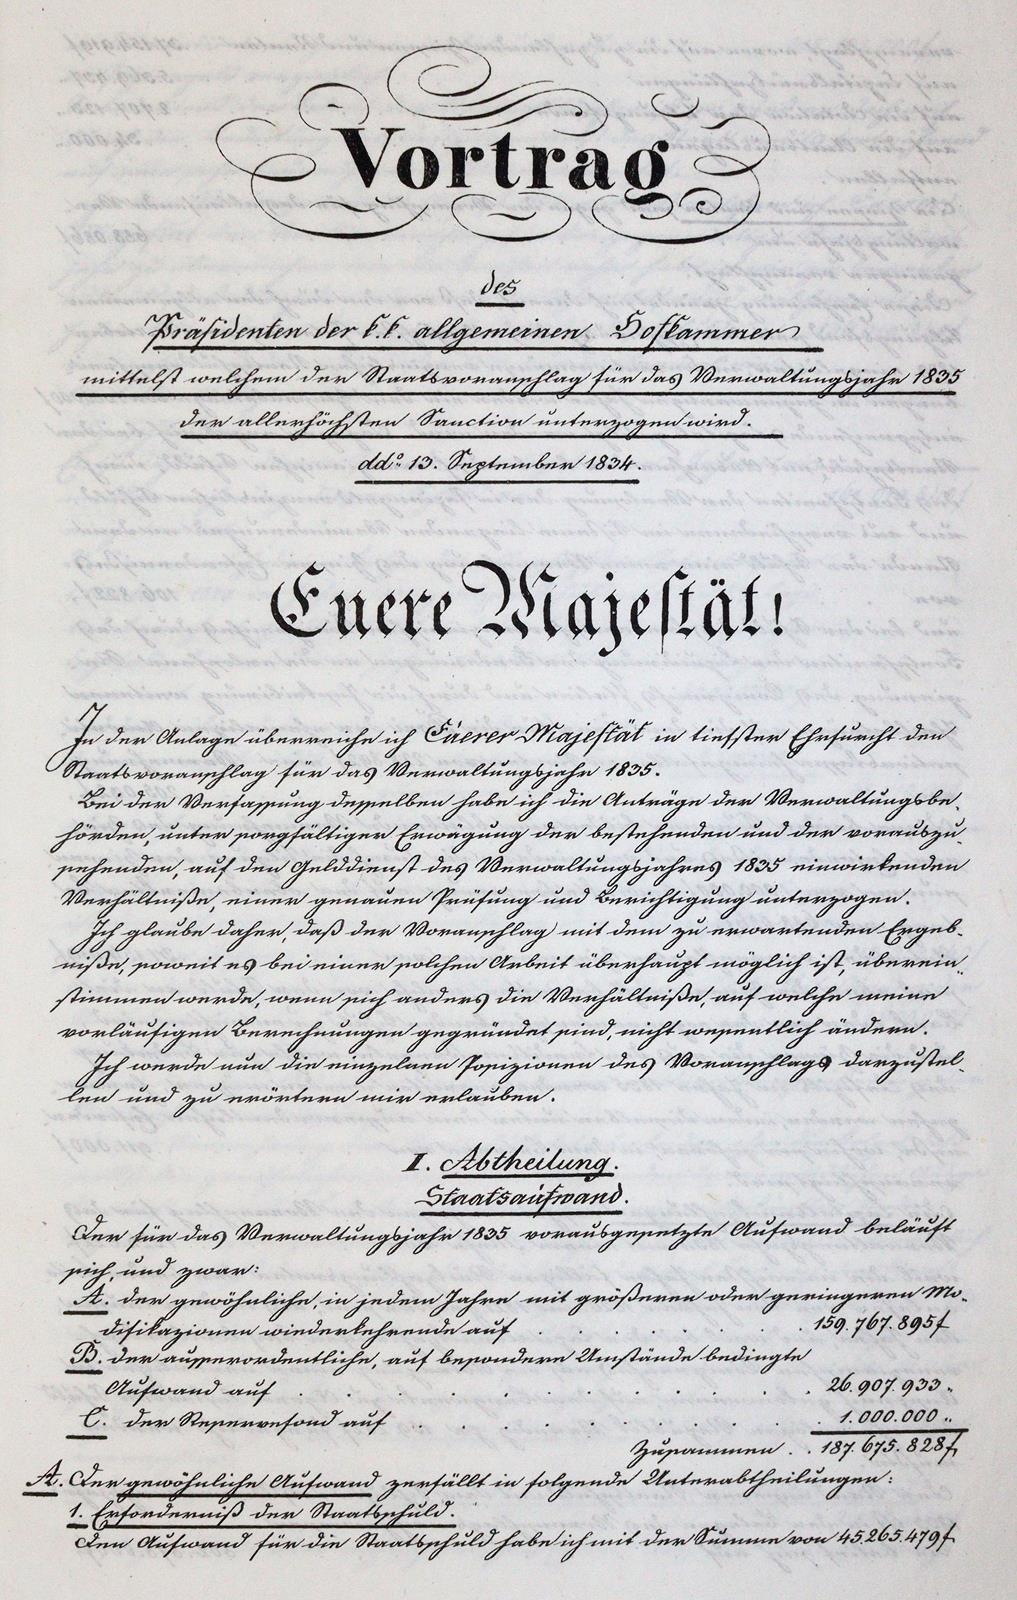 Vortrag
des
Präsidenten der k.k. allgemeinen Hofkammer
mittelst welchem der Staatsvoranschlag für das Verwaltungsjahr 1835
der allerhöchsten Sanction unterzogen wird.
ddo. 13. September 1834.
Euere Majestät!
In der Anlage überreiche ich Euerer Majestät in tiefster Ehrfurcht den
Staatsvoranschlag für das Verwaltungsjahr 1835.
Bei der Verfassung desselben habe ich die Anträge der Verwaltungsbe-
hörden, unter sorgfältiger Erwägung der bestehenden und der vorauszu-
sehenden, auf den Gelddienst des Verwaltungsjahres 1835 einwirkenden
Verhältniße, einer genauen Prüfung und Berichtigung unterzogen.
Ich glaube daher, daß der Voranschlag mit dem zu erwartenden Ergeb-
niße, soweit es bei einer solchen Arbeit überhaupt möglich ist, überein-
stimmen werde, wenn sich anders die Verhältniße, auf welche meine
vorläufigen Berechnungen gegründet sind, nicht wesentlich ändern.
Ich werde nun die einzelnen Posizionen des Voranschlags darzustel-
len und zu erörtern mir erlauben.
I. Abtheilung.
Staatsaufwand.
Der für das Verwaltungsjahr 1835 vorausgesetzte Aufwand beläuft
sich, und zwar:
A. der gewöhnliche, in jedem Jahre mit größeren oder geringeren Mo-
difikazionen wiederkehrende auf . . . . . . 159.767.895f
B. der ausserordentliche, auf besondere Umstände bedingte
Aufwand auf . . . . . . . . . . 26.907.933 "
C. der Reservefond auf . . . . . . . . 1.000.000 "
Zusammen . . 187.675.828f
A. Der gewöhnliche Aufwand zerfällt in folgende Unterabtheilungen:
1. Erforderniß der Staatsschuld.
Den Aufwand für die Staatsschuld habe ich mit der Summe von 45.265.479f